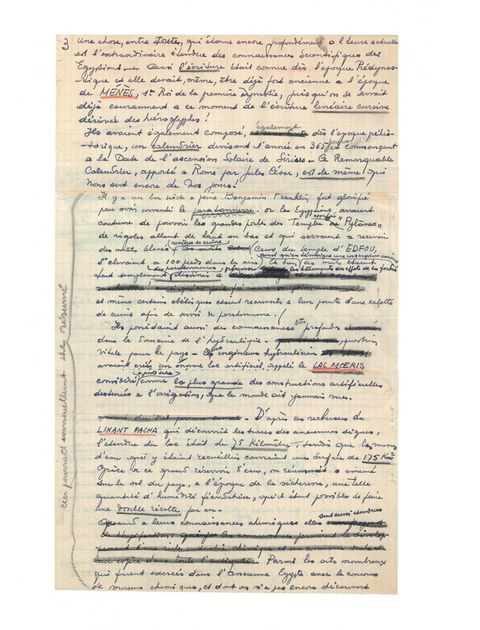 3 Une chose, entre toutes, qui étonne encore profondément à l'heure actuelle
est l'extraordinaire étendue des connaissances Scientifiques des
Egyptiens. Ainsi l'écriture était connue dès l'époque Prédynas-
tique et elle devait même, être déjà fort ancienne à l'époque
de MÉNÈS, 1er Roi de la première Dynastie, puisqu'on se servait
déjà couramment à ce moment de l'écriture linéaire cursive
dérivée des hiéroglyphes!
Ils avaient également composé, dès l'époque préhis-
torique, un calendrier divisant l'année en 365 jours commençant
à la Date de l'ascension Solaire de Sirius. Ce Remarquable
Calendrier, apporté à Rome par Jules César, est le même qui
Nous sert encore de Nos jours.
Il y a un bon siècle à peine Benjamin Franklin, fut glorifié
pour avoir inventé le paratonnerre. or les Egyptiens, avaient
coutume de pourvoir les grandes portes des Temples "Pylônes"
de rigoles allant de haut en bas et qui servaient à recevoir
des mats élevés Ceux du temple d'EDFOU,
S'élevaient à 100 pieds dans les airs
tout simplement
et même certains obélisques étaient recouverts à leur pointe d'une calotte
de cuivre afin de servir de paratonnerre!
Ils possédaient aussi des connaissances très profondes
dans le domaine de l'hydraulique. question
vitale pour le pays. ingénieurs hydrauliciens
avaient créé un énorme lac artificiel, appelé le LAC MOERIS
considéré comme la plus grande des constructions artificielles
destinées à l'irrigation, que le monde ait jamais vues.
D'après les recherches de
LINANT PACHA qui découvrit les traces des anciennes digues,
l'étendue du lac était de 75 Kilomètres, tandis que les masses
d'eau qui y étaient recueillies couvraient une surface de 175 Km2
Grâce à ce grand réservoir d'eau, on réussissait à amener
sur le sol du pays, à l'époque de la sécheresse, une telle
quantité d'humidité fécondatrice, qu'il était possible de faire
une double récolte par an.
Quand à leurs connaissances chimiques elles sont aussi étendues
Parmi les arts nombreux
qui furent exercés dans l'ancienne Egypte avec le concours
de moyens chimiques, et dont on n'a pas encore découvert
ceci pourrait éventuellement être résumé